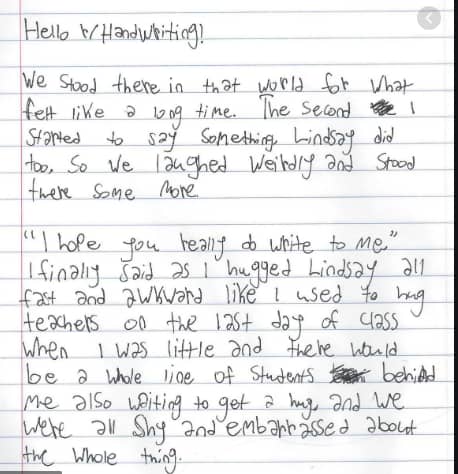 Hello r/Handwriting!
We Stood there in that world for what
felt like a long time. The Second I
Started to say Something, Lindsay did
too, So we laughed Weirdly and Stood
there Some More
"I hope you really do write to Me,"
I finally Said as I hugged Lindsay all
fast and awkward like I used to hug
teachers on the last day of class
When I was little and there would
be a whole line of Students behind
Me also waiting to get a hug, and we
were all Shy and embarrassed about
the whole thing.